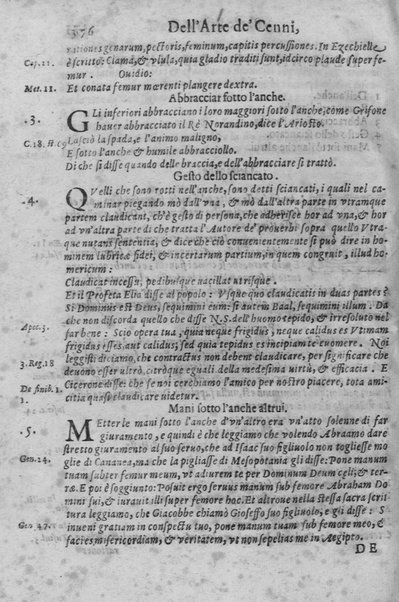 376 Dell'Arte de' Cenni,
rationes genarum, pectoris, feminum, capitis percussiones. In Ezechielle
Cap. 21. è scritto: Clama, & vlula, quia gladio traditi sunt, idcirco plaude super fe-
mur. Ouidio:
Met. 11. Et conata femur mœrenti plangere dextra.
Abbracciar sotto l'anche.
.3. GLi inferiori abbracciano i loro maggiori sotto l'anche, come Grifone
hauer abbracciato il Rè Norandino, dice l'Ariosto.
C. 18. Lasciò la spada, e l'animo maligno,
E sotto l'anche & humile abbracciollo.
Di che si disse quando delle braccia, e dell'abbracciare si trattò.
Gesto dello sciancato.
.4. QVelli che sono rotti nell'anche, son detti sciancati, i quali nel ca-
minar piegando mò dall'vna, & mò dall'altra parte in vtramque
partem claudicant, ch'è gesto di persona, che adherisce hor ad vna, & hor
ad vn'altra parte di che tratta l'Autore de' prouerbi sopra quello Vtra-
que nutans sententia, & dice che ciò conuenientemente si può dire in ho-
minem lubricæ fidei, & incertarum partium, in quem congruit, illud ho-
mericum:
Claudicat incessu, pedibusque vacillat vtrisque.
Et il Profeta Elia disse al popolo: Vsque quo claudicatis in duas partes?
Si Dominus est Deus, sequimini eum: si autem Baal, sequimini illum. Da
che non discorda quello che disse N.S. dell'huomo tepido, & irresoluto nel
Apoc. 3. far bene: Scio opera tua, quia neque frigidus, neque calidus es Vtimam
frigidus esses aut calidus; sed quia tepidus es incipiam te euomere. Noi
3. Reg. 18 leggisti diciamo, che contractus non debent claudicare, per significare che
deuono esser vltrò, citròque eguali della medesima virtù, & efficacia. E
De finib. 1. Cicerone disse: che se noi cerchiamo l'amico per nostro piacere, tota ami-
citia quasi claudicare uidetur.
Mani sotto l'anche altrui.
.5. MEtter le mani sotto l'anche d'vn'altro era vn'atto solenne di far
giuramento, e quindi è che leggiamo che volendo Abraamo dare
stretto giuramento al suo seruo, che ad Isaac suo figliuolo non togliesse mo
Gen. 24. glie di Cananea, ma che la pigliasse di Mesopotania gli disse: Pone manum
tuam subter femur meum, vt adiurem te per Dominum Deum celi; & ter-
re. E poi è soggiunto: Posuit ergo seruus manum sub femore Abraham Do
mini sui, & iurauit illi super femore hoc. Et altroue nella stessa sacra scrit
tura leggiamo, che Giacobbe chiamò Gioseffo suo figliuolo, e gli disse: S
Gen. 47. inueni gratiam in conspectu tuo, pone manum tuam sub femore meo, &
facies misericordiam, & veritatem, vt non sepelias me in Aegipto.
DE